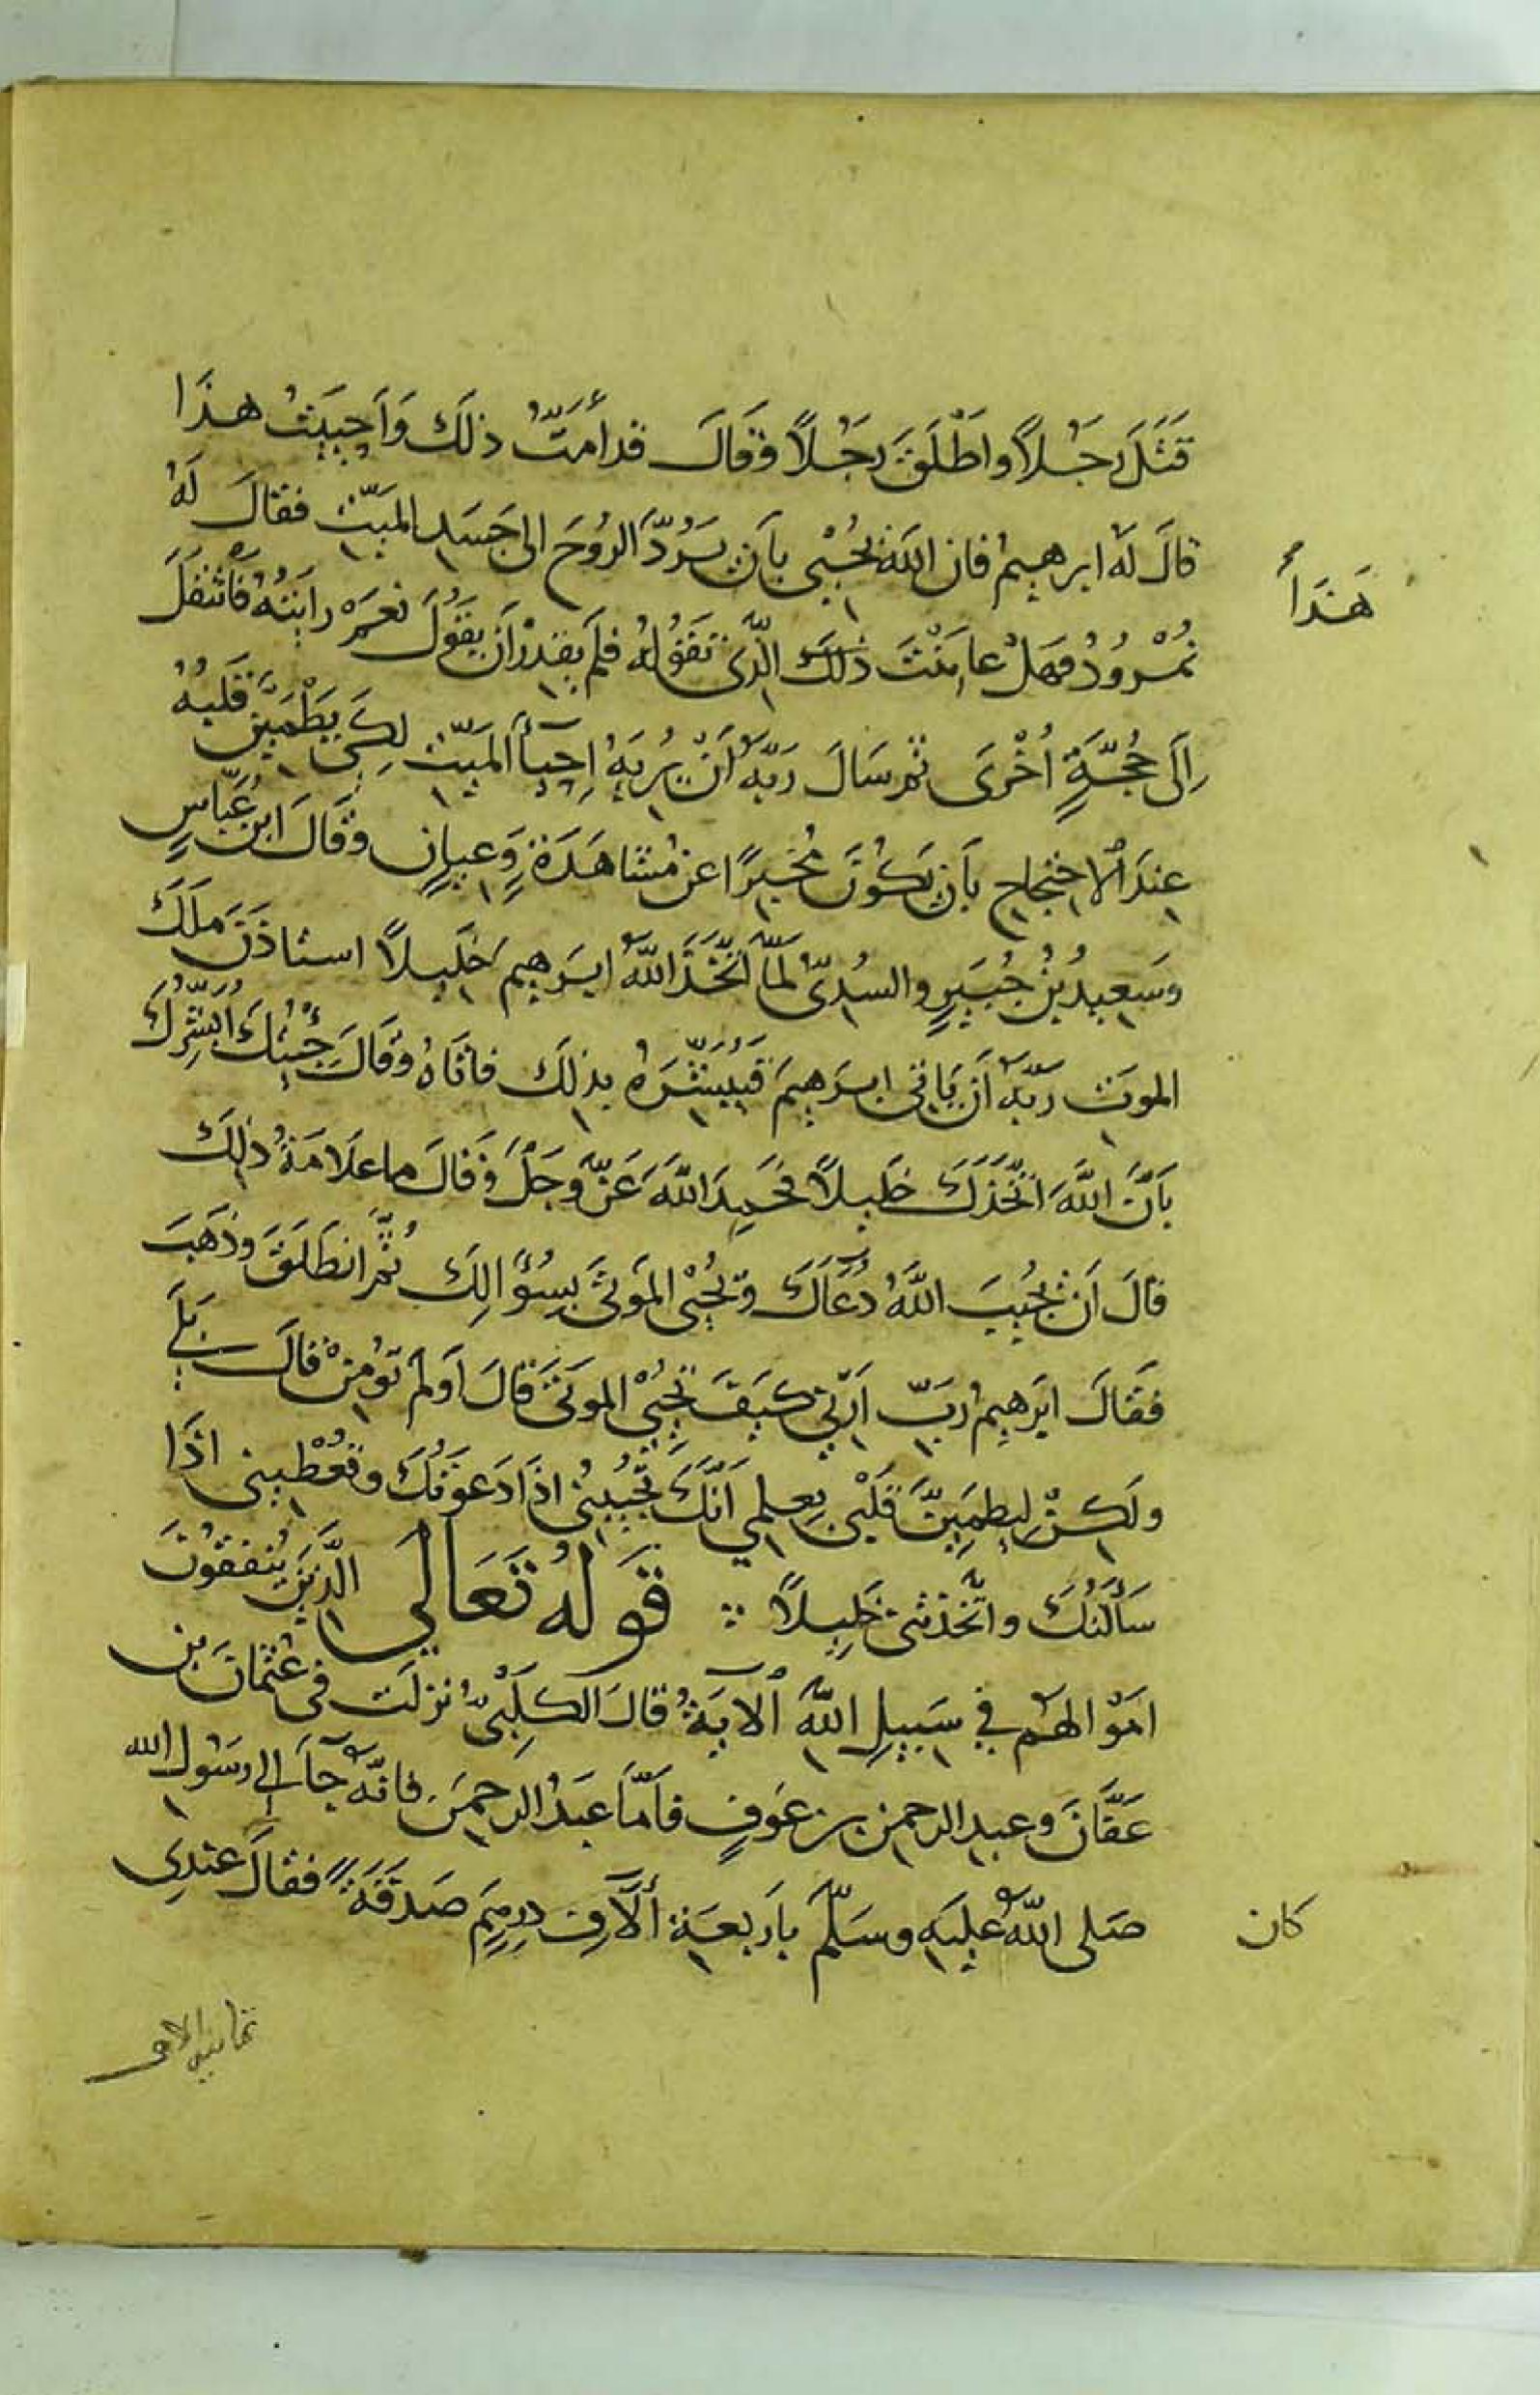 قَتَلَ رَجُلاً واَطْلَقَ رَجُلاً وَقَالَ قد أَمَتُّ ذلكَ وَاَحييَتُ هذَا
قالَ لَهُ ابرهيمُ فان اللهَ يُحْيي بأن يَرُدَّ الرُوحَ الى جَسَدِ الميّتِ فقالَ لَهُ
هَذَاْ
نمْرُودُ فهَلْ عايَنْتَ ذلكَ الَّذى تَقُولُهُ فلم يقدرْ اَن يقولَ نعمْ رايتُهُ فانتقلَ
اِلَى حُجَّةٍ اُخْرَى ثم سَالَ رَبَّهُ اَنْ يُريَهُ اِحيآءَ الميّتِ لِكَى يَطْمَيِنَّ قَلبُهُ
عِندَ الاحتجاجِ بأن يَكُونَ مُخبِرًا عن مُشَاهَدَةٍ وَعِيانٍ وقالَ ابنُ عَبّاسٍ
وَسَعيدُ بنُ جُبَيرٍ والسُدىّ لمّا اتّخَذَ اللهُ ابرَهيمَ خَليلاً استاذَنَ مَلَكَ
الموتِ رَبَّهُ اَن يَاتى ابرَهيمَ فَيُبَشّرَهُ بذلكَ فاتَاهُ وقَالَ جِئتُكَ اُبَشّرُكَ
بأنَّ اللهَ اتّخَذَكَ خَليلاً فحَمِدَ اللهَ عَزَّ وجَلَّ وَقالَ ما علاَمَةُ ذلِكَ
قالَ اَن يُجيبَ اللهُ دُعَاَكَ ويُحْيى المَوتَى بسُؤَالِكَ ثُمَّ انطَلَقَ وذَهَبَ
فقَالَ ابرَهيمُ ربِّ اَرِنِى كَيفَ تُحْيى الموتَى قالَ اَوَلم تؤمِنْ قالَ بَلَى
ولَكِنْ لِيطمَيِنَّ قَلبِى بعِلمِي اَنّكَ تُجيبُنى اذَا دَعَوتُكَ وتُعْطِينى اذَا
سَأَلتُكَ واتَّخَذتَنى خَليلاً ∴ قَولُهُ تَعَالَى الَّذِينَ يُنفقُونَ
اموَالهُم في سَبيلِ اللهِ الآيَةُ قالَ الكَلبىُّ نزلَت فى عُثمَانَ بنِ
عَفَّانَ وعبدِ الرحمنِ بن عَوفٍ فاَمّا عَبدُ الرحمنِ فانّهُ جآءَ الى رسُولِ الله
صَلى اللهُ عليهِ وسَلّمَ باَربعَةِ اَلآفِ دِرهَمٍ صَدقَةً فقالَ عندِى
كان